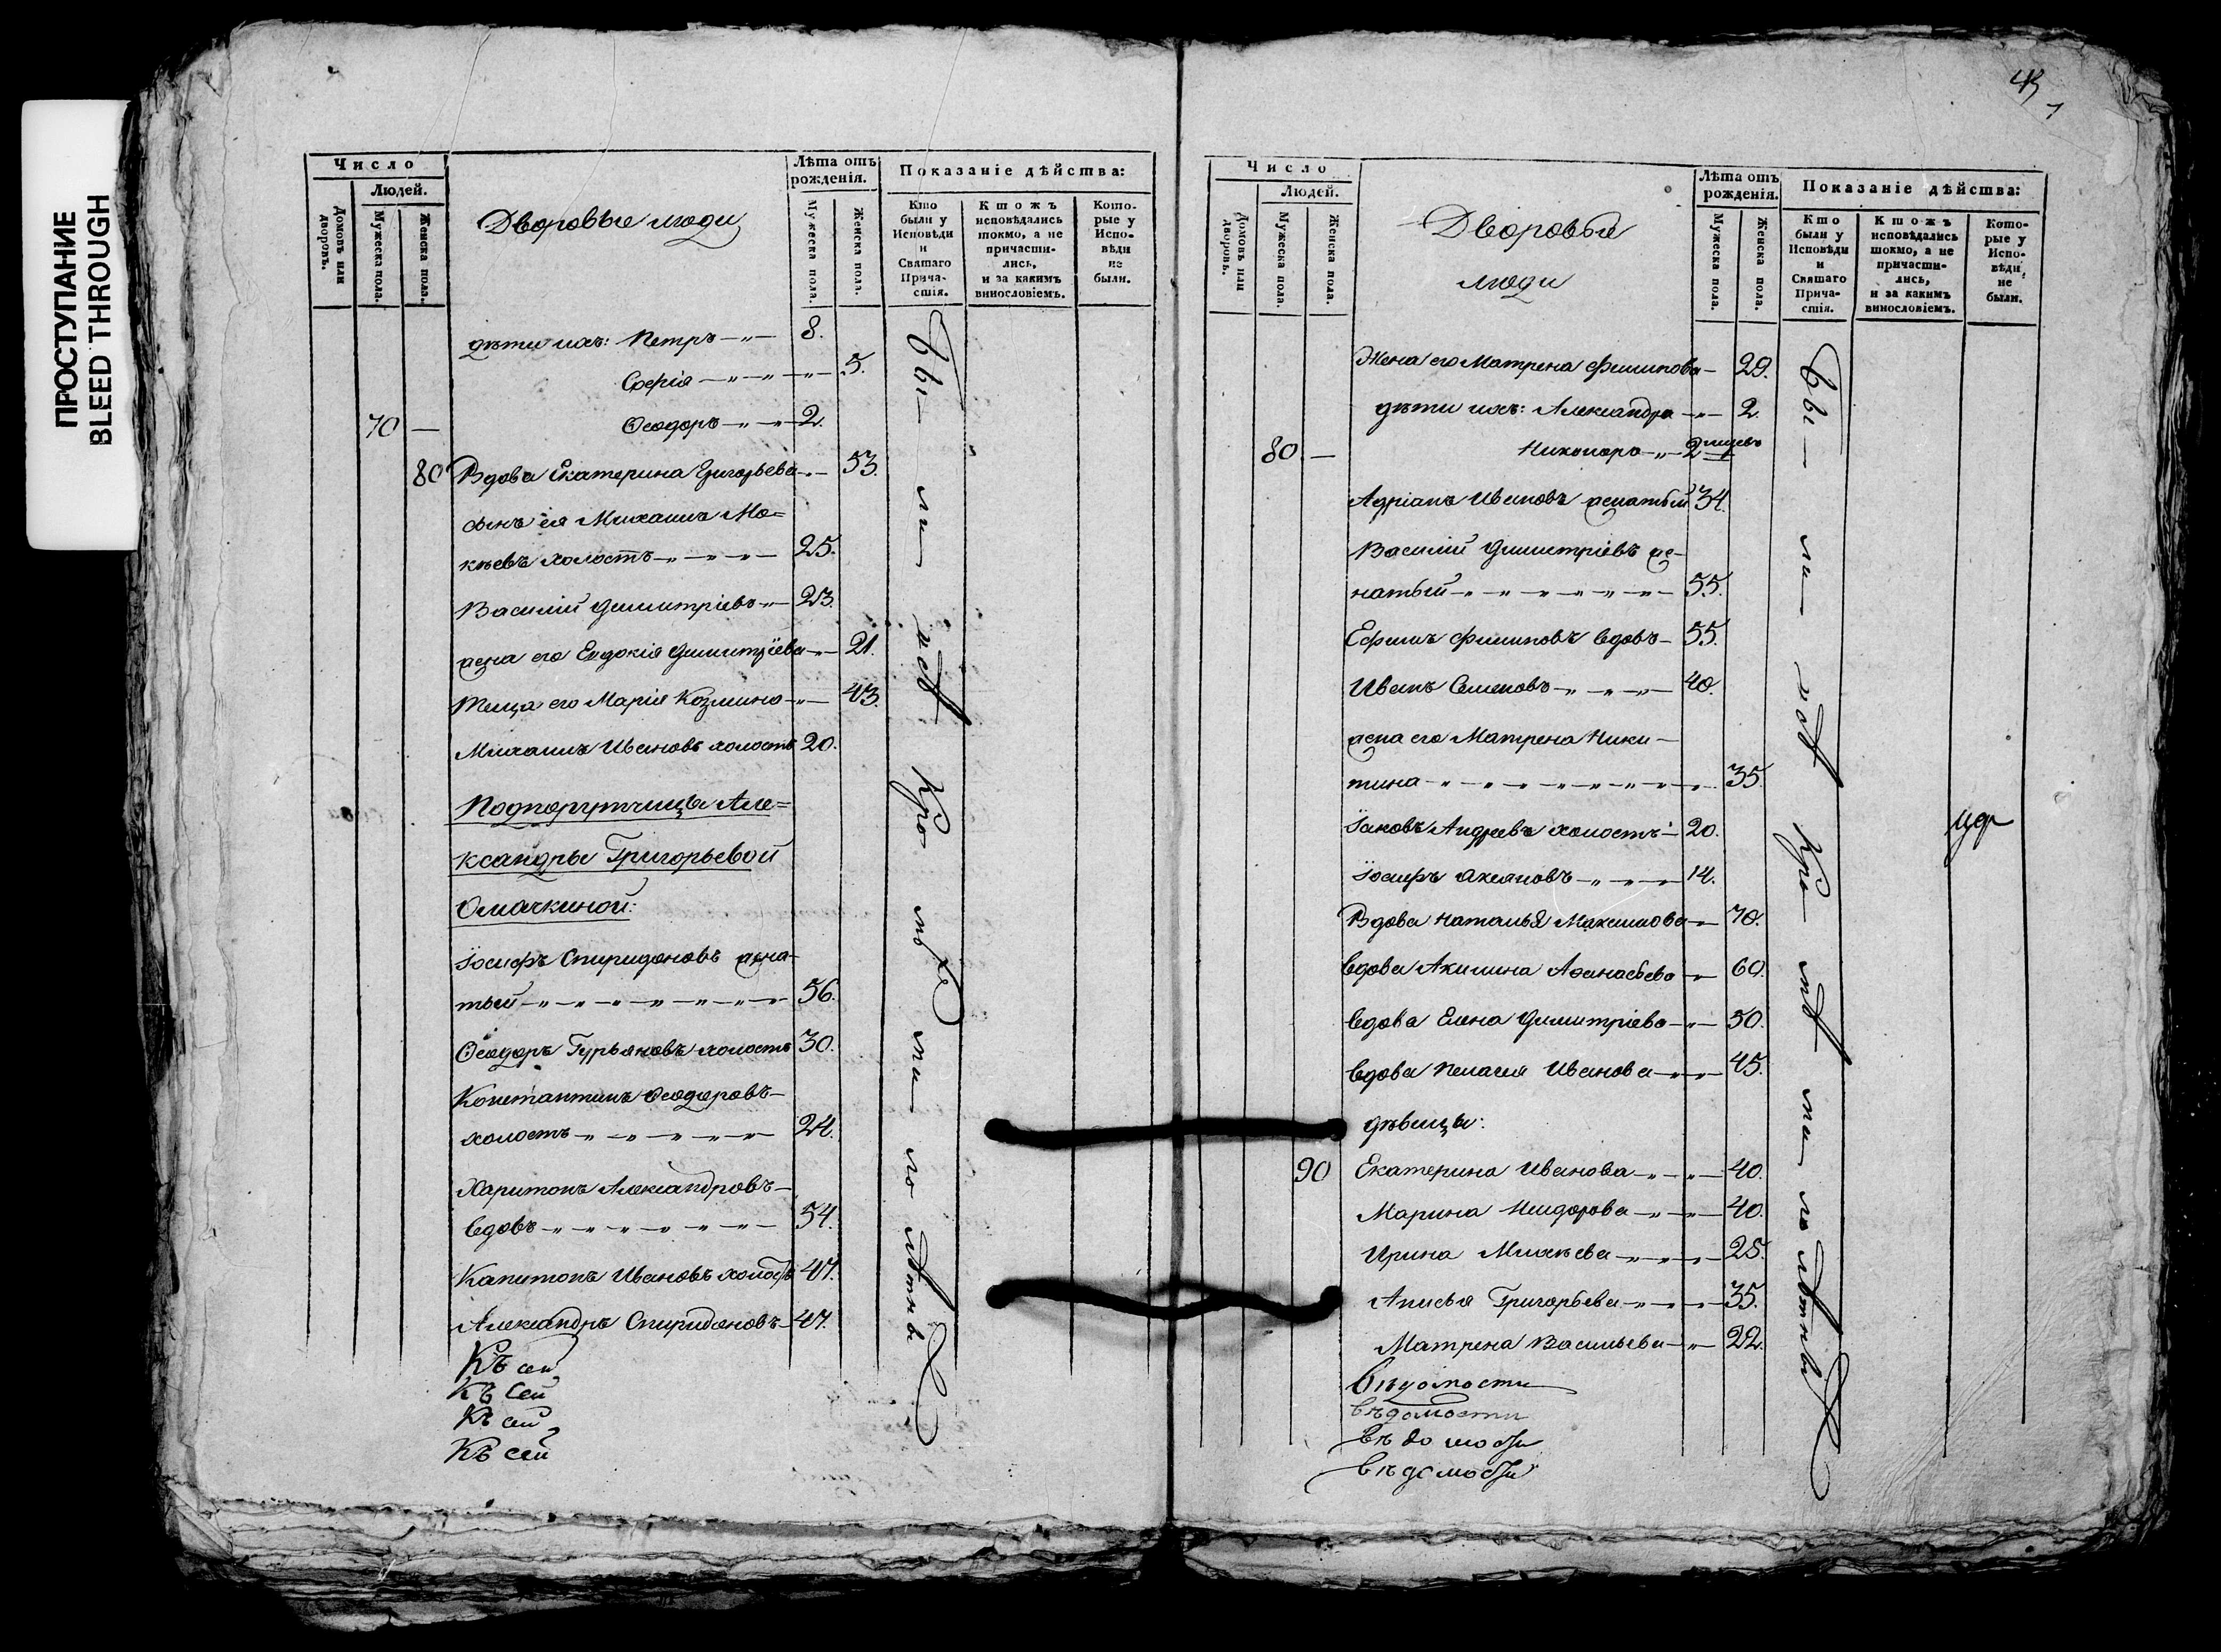 ПРОСТУПАНИЕ
BLEED THROUGH
Число
Людей.
Домовъ или дворовъ.
Мужеска пола.
Женска пола.
Дворовые люди
Лѣта отъ рожденія.
Мужеска пола.
Женска пола.
Показаніе дѣйства:
Кто были у Исповѣди и Святаго Прича-стія.
Ктожъ исповѣдались токмо, а не причасти-лись, и за какимъ винословіемъ.
Кото-рые у Испо-вѣди не были.
дѣти ихъ: Петръ 8.
Софія 5.
70 — Ѳеодоръ 2.
80 Вдова Екатерина Григорьева 53.
сынъ ея Михаилъ Мо=
кѣевъ холостъ 25.
Василій Димитріевъ 23.
жена его Евдокія Димитріева 21.
теща его Марія Козмина 43.
Михаилъ Ивановъ холостъ 20.
Подпорутчицы Але=
ксандры Григорьевой
Іосифъ Спиридоновъ жена-
тый 56.
Ѳеодоръ Гурьяновъ холостъ 30.
Константинъ Ѳеодоровъ
холостъ 24.
Харитонъ Александровъ
вдовъ 54.
Капитонъ Ивановъ холостъ 47.
Александръ Спиридоновъ 47.
Къ сей
Къ сей
Къ сей
Къ сей
Бы-ли
Число
Людей.
Домовъ или дворовъ.
Мужеска пола.
Женска пола.
Дворовые
люди
Лѣта отъ рожденія.
Мужеска пола.
Женска пола.
Показаніе дѣйства:
Кто были у Исповѣди и Святаго Прича-стія.
Ктожъ исповѣдались токмо, а не причасти-лись, и за какимъ винословіемъ.
Кото-рые у Испо-вѣди не были.
Жена его Матрена Филипова 29.
дѣти ихъ: Александра 2.
80 — Никоноръ 2
Адріанъ Ивановъ женатый 34.
Василій Димитріевъ же-
натый 55.
Ефимъ Филиповъ вдовъ 55.
Иванъ Семеновъ 40.
жена его Матрена Ники-
тина 35.
Іаковъ Андреевъ холостъ 20.
Іосифъ 14.
Вдова Наталья Максимова 70.
вдова Акилина Аѳанасьева 60.
вдова Елена Димитріева 50.
вдова Пелагея Иванова 45.
дѣвицы:
90 Екатерина Иванова 40.
Марина 40.
Ирина Михѣева 25.
Анисья Григорьева 35.
Матрена Васильева 22.
вѣдомости
вѣдомости
вѣдомости
вѣдомости
Бы-ли